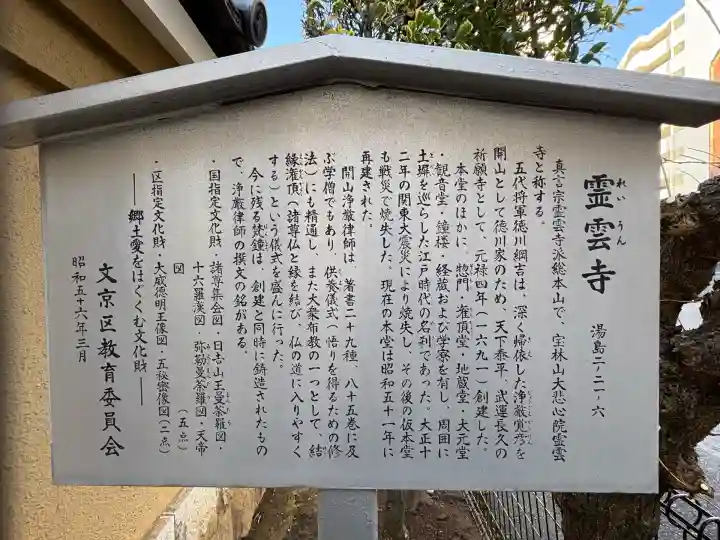 霊雲寺
れいうん
湯島二ノ二一ノ六
真言宗霊雲寺派総本山で、宝林山大悲心院霊雲
寺と称する。
五代将軍徳川綱吉は、深く帰依した浄厳覚彦を
開山として徳川家のため、天下泰平、武運長久の
祈願寺として、元禄四年(一六九一)創建した。
本堂のほかに、惣門・潅頂堂・地蔵堂・大元堂
・観音堂・鐘楼・経蔵および学寮を有し、周囲に
土塀を巡らした江戸時代の名刹であった。大正十
二年の関東大震災により焼失し、その後の仮本堂
も戦災で焼失した。現在の本堂は昭和五十一年に
再建された。
開山浄厳律師は、著書二十九種、八十五巻に及
ぶ学僧でもあり、供養儀式(悟りを得るための修
法)にも精通し、また大衆布教の一つとして、結
縁潅頂(諸尊仏と縁を結び、仏の道に入りやすく
する)という儀式を盛んに行った。
今に残る梵鐘は、創建と同時に鋳造されたもの
で、浄厳律師の撰文の銘がある。
・国指定文化財・諸尊集会図・日吉山王曼荼羅図・
十六羅漢図・弥勒曼荼羅図・天帝
図(五点)
・区指定文化財・大威徳明王像図・五秘密像図(二点)
―郷土愛をはぐくむ文化財―
文京区教育委員会
昭和五十六年三月